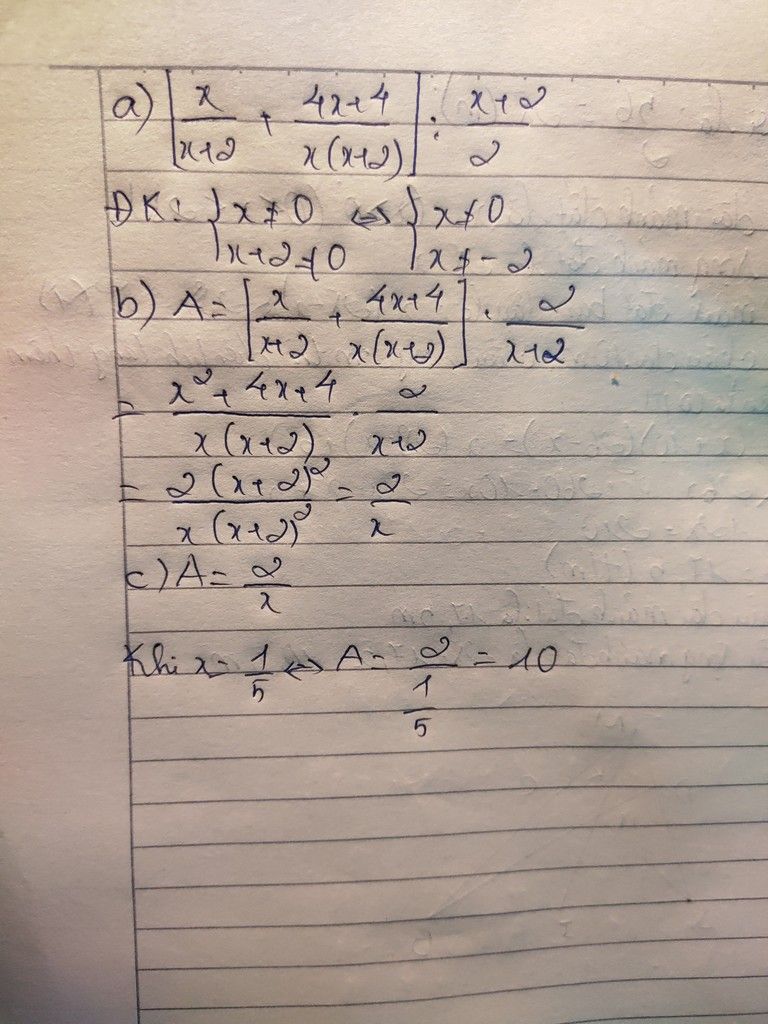 a) [x/(x+2) + (4x+4)/(x(x+2))] : (x+2)/2
ĐK: { x ≠ 0 ⇔ { x ≠ 0
x+2 ≠ 0 x ≠ -2
b) A = [x/(x+2) + (4x+4)/(x(x+2))] . 2/(x+2)
= (x² + 4x + 4)/(x(x+2)) . 2/(x+2)
= 2(x+2)²/(x(x+2)²) = 2/x
c) A = 2/x
Khi x = 1/5 ⇔ A = 2/(1/5) = 10